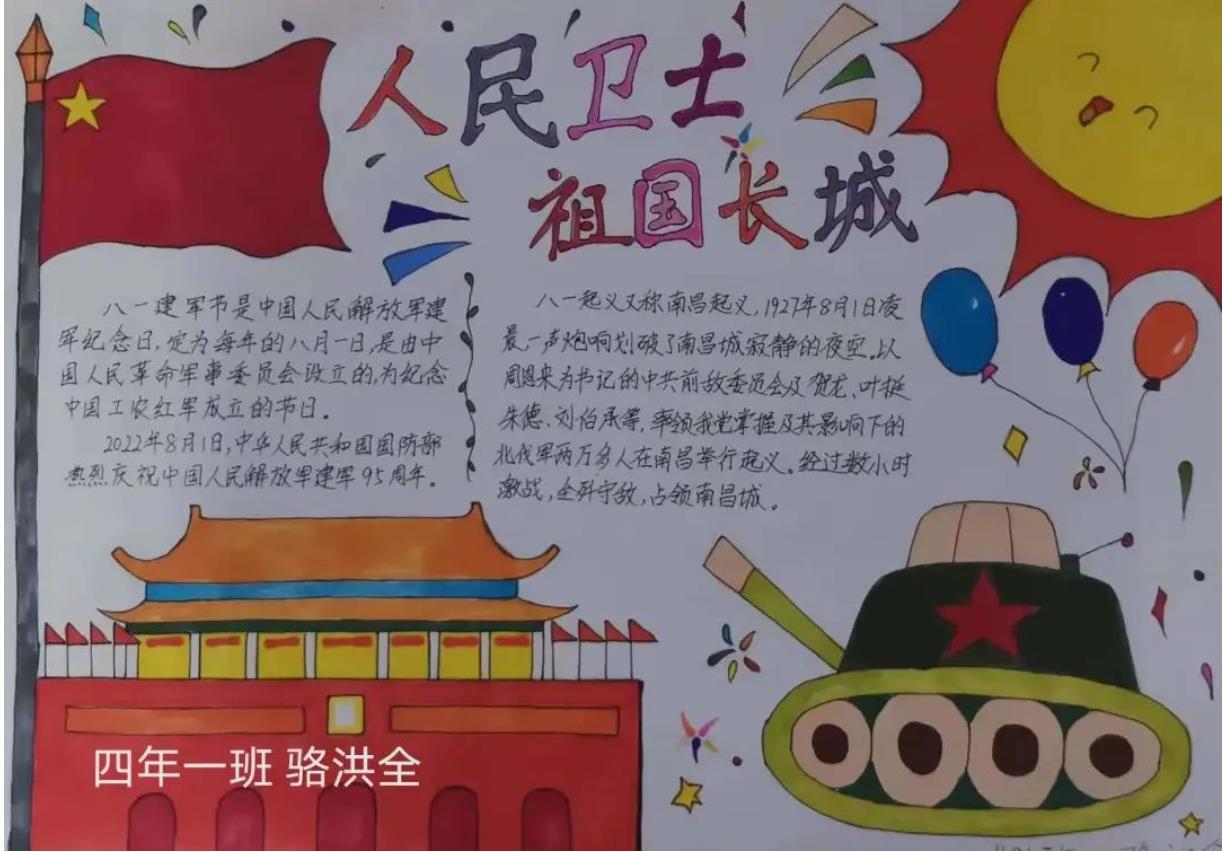 人民卫士
祖国长城
八一建军节是中国人民解放军建
军纪念日，定为每年的八月一日，是由中
国人民革命军事委员会设立的，为纪念
中国工农红军成立的节日。
2022年8月1日，中华人民共和国国防部
热烈庆祝中国人民解放军建军95周年。
八一起义又称南昌起义，1927年8月1日凌
晨一声炮响划破了南昌城寂静的夜空。以
周恩来为书记的中共前敌委员会及贺龙、叶挺
朱德、刘伯承等，率领我党掌握及其影响下的
北伐军两万多人在南昌举行起义。经过数小时
激战，全歼守敌，占领南昌城。
四年一班 骆洪全